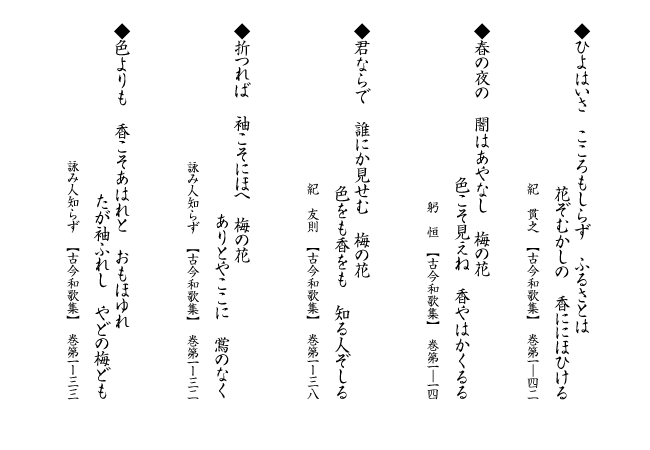 ◆ひよはいさ　こころもしらず　ふるさとは
花ぞむかしの　香ににほひける
紀　貫之　【古今和歌集】　巻第一―四二
◆春の夜の　闇はあやなし　梅の花
色こそ見えね　香やはかくるる
躬　恒　【古今和歌集】　巻第一―四
◆君ならで　誰にか見せむ　梅の花
色をも香をも　知る人ぞしる
紀　友則　【古今和歌集】　巻第一―三八
◆折つれば　袖こそにほへ　梅の花
ありとやここに　鴬のなく
詠み人知らず　【古今和歌集】　巻第一―三二
◆色よりも　香こそあはれと　おもほゆれ
たが袖ふれし　やどの梅ども
詠み人知らず　【古今和歌集】　巻第一―三三